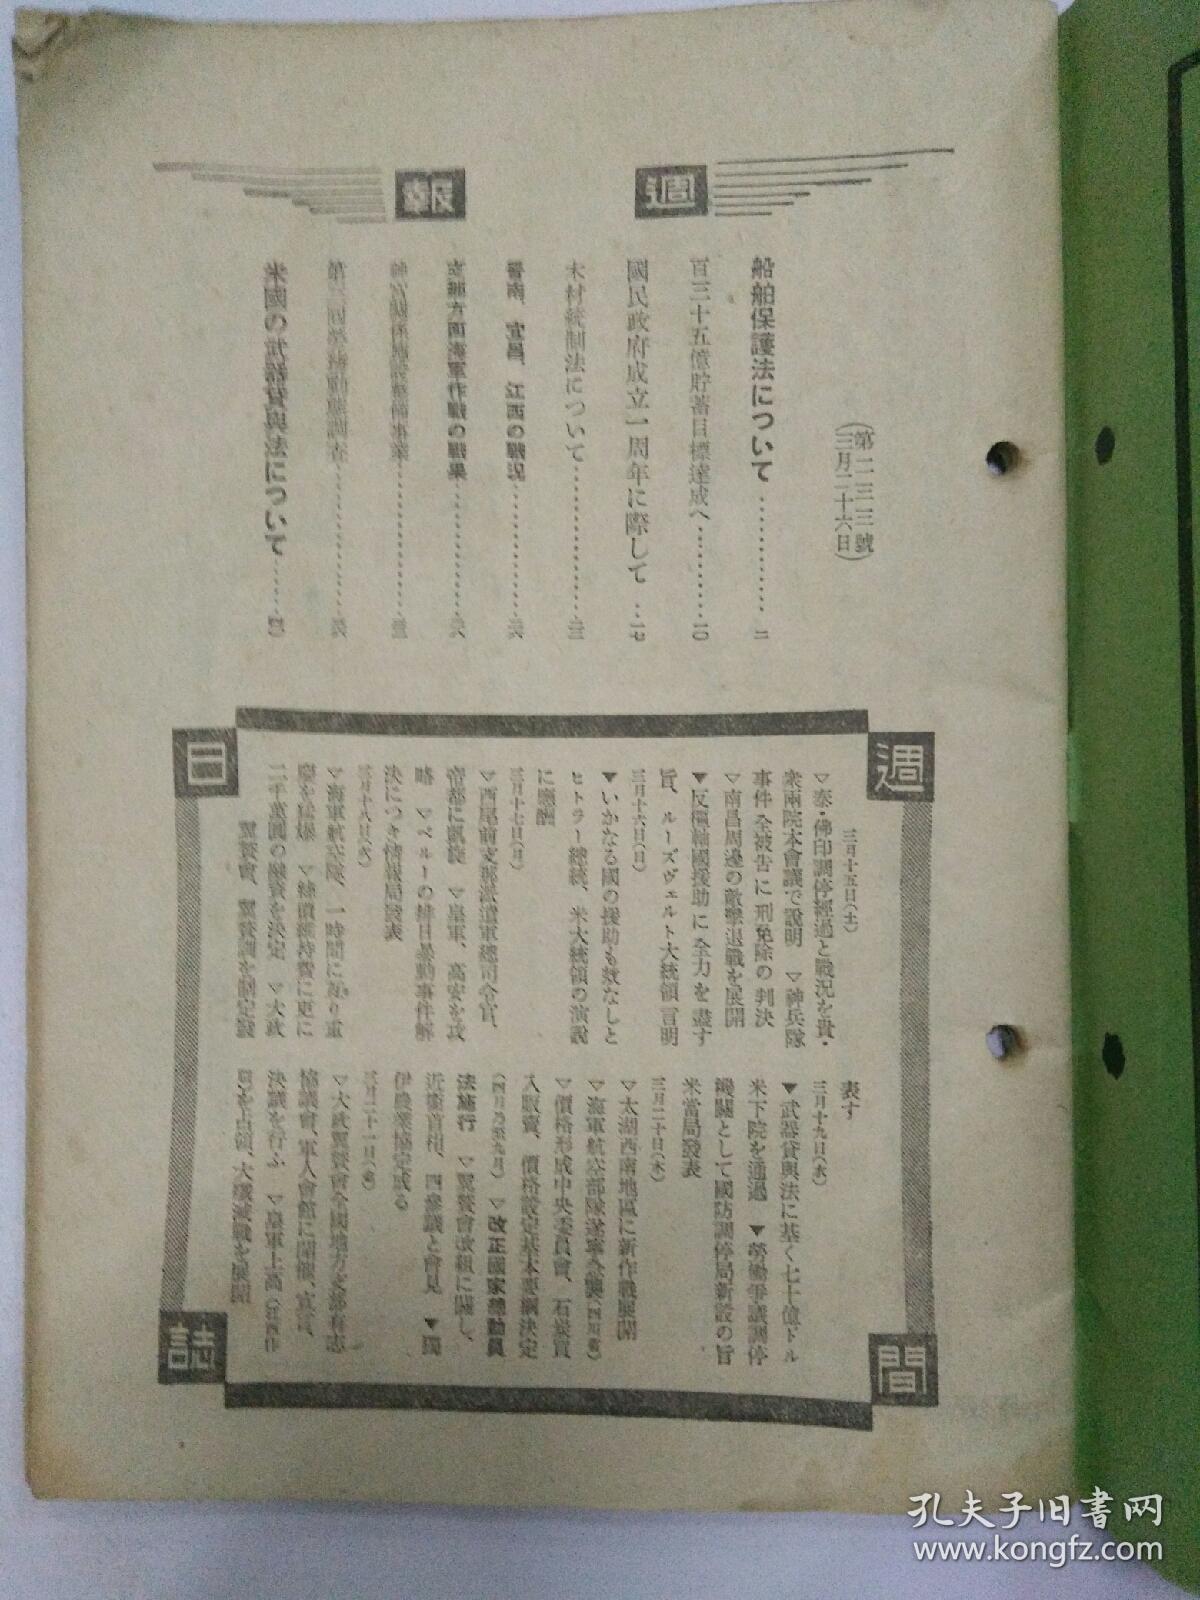 週報
(第二三三號
三月二十六日)
船舶保護法について…………二
百三十五億貯蓄目標達成へ…………一〇
國民政府成立一周年に際して…一七
木材統制法について…………三三
晋南、宜昌、江西の戰況…………
支那方面海軍作戰の戰果…………
米國の武器貸與法について……
週間日誌
三月十五日(土)
▽泰・佛印調停經過と戰況を貴・
衆兩院本會議で説明 ▽神兵隊
事件全被告に刑免除の判決
▽南昌周邊の敵撃退戰を展開
▼反樞軸國援助に全力を盡す
旨、ルーズヴェルト大統領言明
三月十六日(日)
▼いかなる國の援助も效なしと
ヒトラー總統、米大統領の演説
に應酬
三月十七日(月)
▽西尾前支那派遣軍總司令官、
帝都に凱旋 ▽皇軍、高安を攻
略 ▽ペルーの排日暴動事件解
決につき情報局發表
三月十八日(火)
▽海軍航空隊、一時間に亙り重
慶を猛爆 ▽絲價維持費に更に
二千萬圓の融資を決定 ▽大政
翼賛會、翼賛訓を制定發
表す
三月十九日(水)
▼武器貸與法に基く七十億ドル
米下院を通過 ▼勞働爭議調停
機關として國防調停局新設の旨
米當局發表
三月二十日(木)
▽太湖西南地區に新作戰展開
▽海軍航空部隊遂寧急襲(四川省)
▽價格形成中央委員會、石炭買
入販賣、價格設定基本要綱決定
(四月乃至九月) ▽改正國家總動員
法施行 ▽翼賛會改組に關し、
近衞首相、四參議と會見 ▼獨
伊農業協定成る
三月二十一日(金)
▽大政翼賛會全國地方支部有志
協議會、軍人會館に開催、宣言、
決議を行ふ ▽皇軍上高(江西省)
を占領、大殲滅戰を展開
孔夫子旧书网
www.kongfz.com